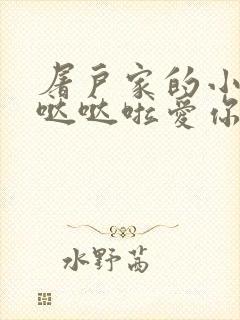 屠户家的小
哒哒啦爱你
水野茜